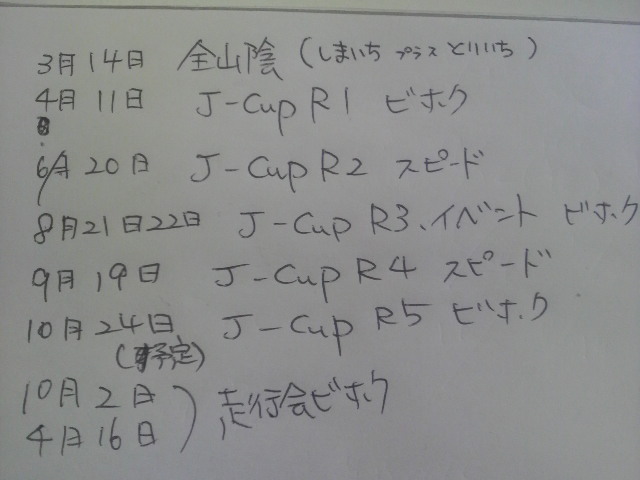 3月14日 全山陰 (しまいち プラス とりいち)
4月11日 J-Cup R1 ビホク
6月20日 J-Cup R2 スピード
8月21日22日 J-Cup R3、イベント ビホク
9月19日 J-Cup R4 スピード
10月24日 J-Cup R5 ビホク
(予定)
10月2日
4月16日 ) 走行会ビホク